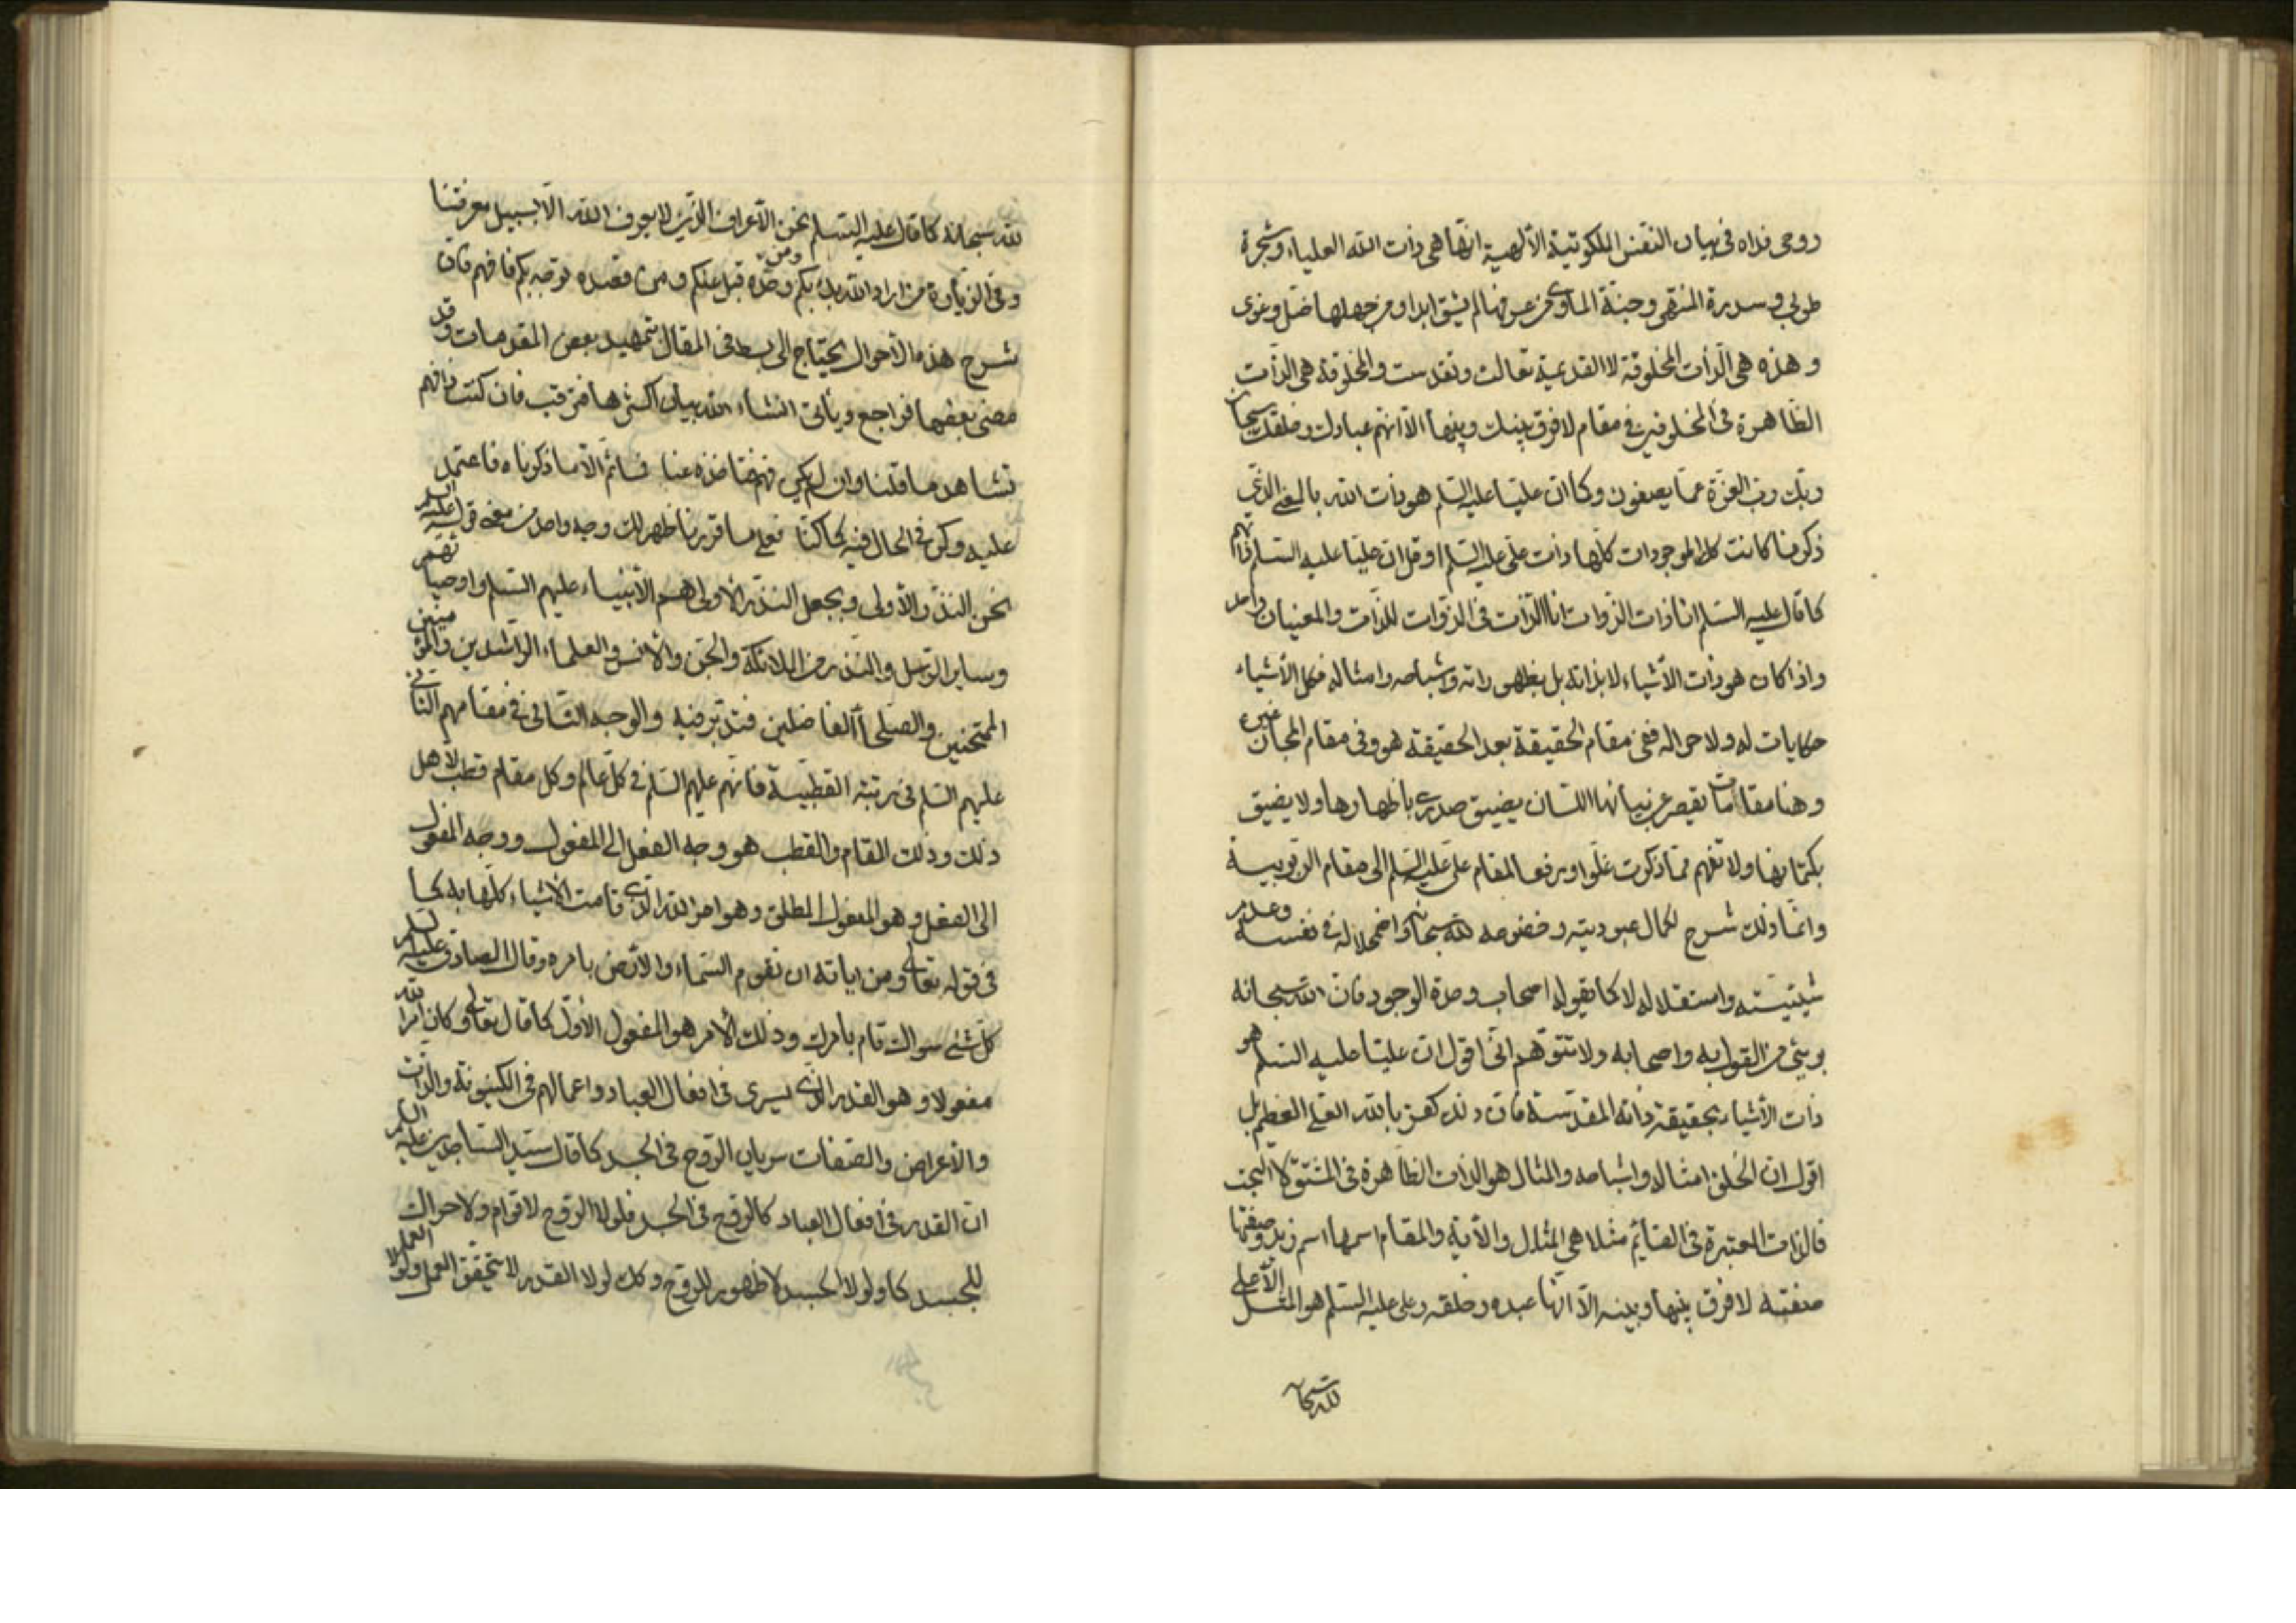 روحی فداه فی بیان النفس الملکوتیة الألهیة انها هی ذات الله العلیاء وشجرة
طوبی وسدرة المنتهی وجنة الماوی من عرفها لم یشق ابدا ومن جهلها ضل وغوی
وهذه هی الذات المخلوقة لا القدیمیة تعالت وتقدست والمخلوقة هی الذات
الظاهرة فی المخلوقین فی مقام لا فرق بینك وبینها الا انهم عبادك وخلقك سبحان
ربك رب العزة عما یصفون وکما ان علیا علیه السلم هو ذات الله بالمعنی الذی
ذکرنا کانت کل الموجودات کلها ذات علی علیه السلم او قل ان علیا علیه السلم ذاتهم
کما قال علیه السلم انا ذات الذوات انا الذات فی الذوات للذات والمعنیان واحد
واذا کان هو ذات الأشیاء لا بذاته بل بظهوراته واشباحه وامثاله فکل الأشیاء
حکایات له ولا حراك ففی مقام الحقیقة بعد الحقیقة هو وفی مقام المجاز غیره
وهنا مقامات یقصر عن بیانها اللسان یضیق صدری باظهارها ولا یضیق
بکتمانها ولا تفهم مما ذکرت غلوا ورفع المقام علی علیه السلم الی مقام الربوبیة
وانما ذلك شرح لکمال عبودیته وخضوعه لله سبحانه واضمحلاله فی نفسه وعدم
شیئیته واستقلاله لا کما یقوله اصحاب وحدة الوجود فان الله سبحانه
بریئ من القول به واصحابه ولا تتوهم انی اقول ان علیا علیه السلم هو
ذات الأشیاء بحقیقة ذاته المقدسة فان ذلك کفر بالله العلی العظیم بل
اقول ان الخلق امثاله واشباحه والمثال هو الذات الظاهرة فی المشتق لا البحت
فالذات المعتبرة فی القائم مثلا هی المثال والأیة والمقام اسمها اسم زید وصفتها
صفته لا فرق بینها وبینه الا انها عبده وخلقه وعلی علیه السلم هو المثل الأعلی
لله سبحانه
لله سبحانه کما قال علیه السلم نحن الأعراف الذین لا یعرف الله الا بسبیل معرفتنا
وفی الزیارة من اراد الله بدء بکم ومن وحده قبل عنکم ومن قصده توجه بکم فافهم فان
شرح هذه الأحوال یحتاج الی بسط فی المقال بتمهید بعض المقدمات وقد
مضی بعضها فراجع ویأتی انشاء الله بیان اکثرها فترقب فان کنت فافهم
تشاهد ما قلنا وان لم یکن فهم فتا خذه عنا فما ثم الا ما ذکرناه فاعتمد
علیه وکن فی الحال فیه کما کنا فعلی ما قررنا ظهر لك وجه واحد من معنی قوله علیه السلم
نحن النذر الأولی ویجعل النذر الأولی هم الأنبیاء علیهم السلم واوصیائهم
وسایر الرسل والنذر من الملائکة والجن والأنس والعلماء الراشدین والمؤمنین
الممتحنین والصلحاء الفاضلین فتدبر فیه والوجه الثانی فی مقامهم الثانی
علیهم السلم فی رتبة القطبیة فانهم علیهم السلم فی کل عالم وکل مقام قطب لأهل
ذلك وذلك المقام والقطب هو وجه الفعل الی المفعول ووجه المفعول
الی الفعل وهو المفعول المطلق وهو امر الله الذی قامت الأشیاء کلها به کما
فی قوله تعالی ومن ایاته ان تقوم السماء والأرض بامره وقال الصادق علیه السلم
کل شئ سواك قام بامرك وذلك الأمر هو المفعول الأول کما قال تعالی وکان امر الله
مفعولا وهو القدر الذی یسری فی افعال العباد واعمالهم فی الکینونة والذات
والأعراض والصفات سریان الروح فی الجسد کما قال سید الساجدین علیه السلم
ان القدر فی افعال العباد کالروح فی الجسد فلولا الروح لا قوام ولا حراك
للجسد کما ولولا الجسد لا ظهور للروح وکك لولا القدر لا تحقق العمل ولولا العمل